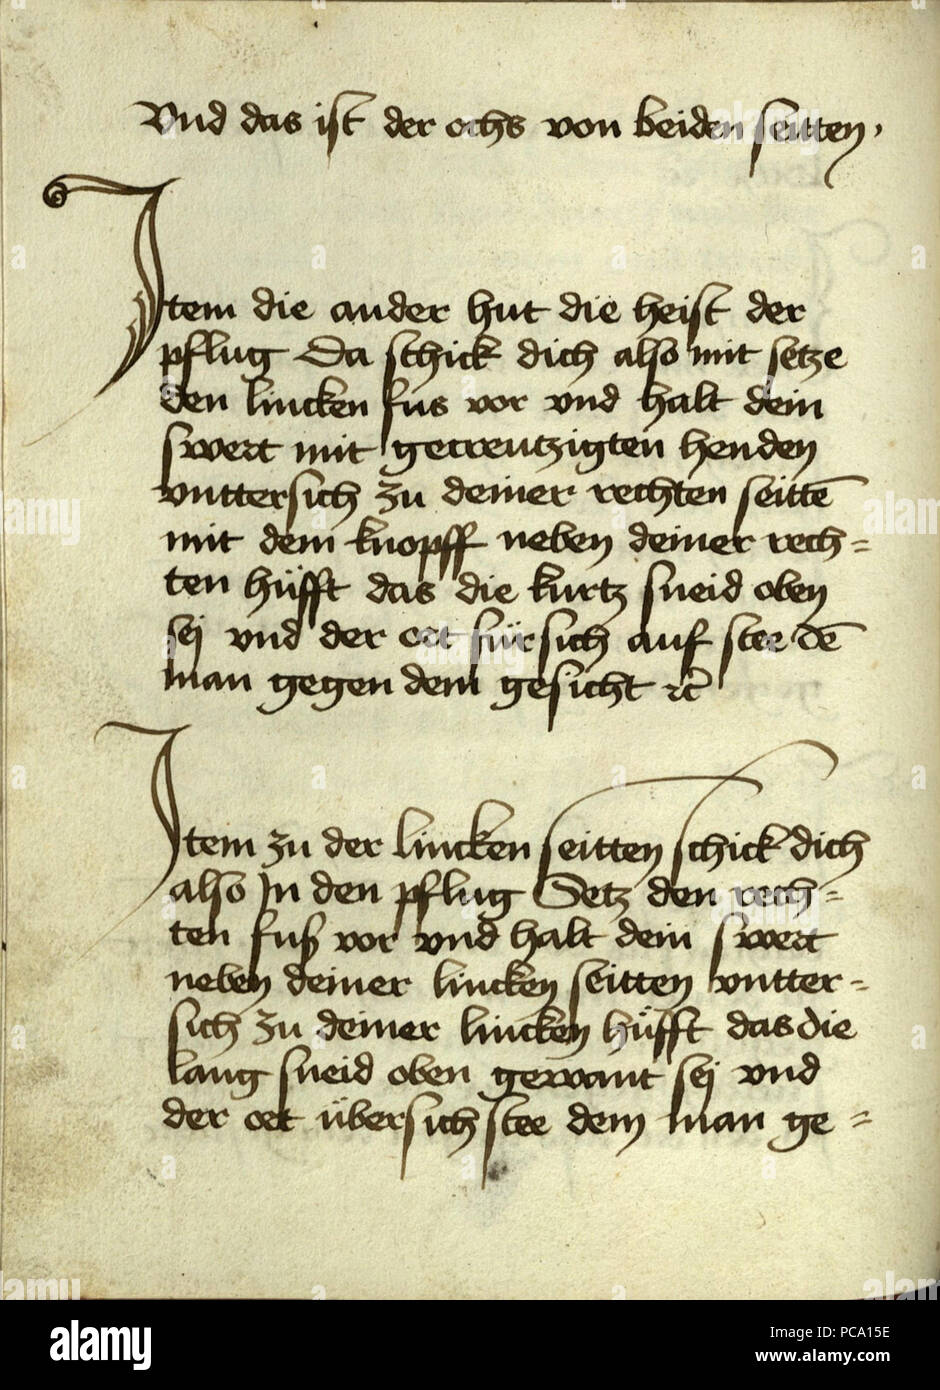 Vnd das ist der ochs von beiden seitten.
Item die ander hut die heist der
pflug Da schick dich also mit setze
den lincken fus vor vnd halt dein
swert mit gecreutzigten henden
vnttersich zu deiner rechten seittē
mit dem knopff neben deiner rech=
ten hüfft das die kurtz sneid oben
sÿ vnd der ort fürsich auf stee dē
man gegen dem gesicht ꝛc̄
Item zu der lincken seitten schick dich
also In den pflug Setz den rech=
ten fuß vor vnd halt dein swert
neben deiner lincken seitten vntter=
sich zu deiner lincken hüfft das die
lang sneid oben gewant sÿ vnd
der ort übersich stee dem man ge=
alamy
Image ID: PCA15E
www.alamy.com